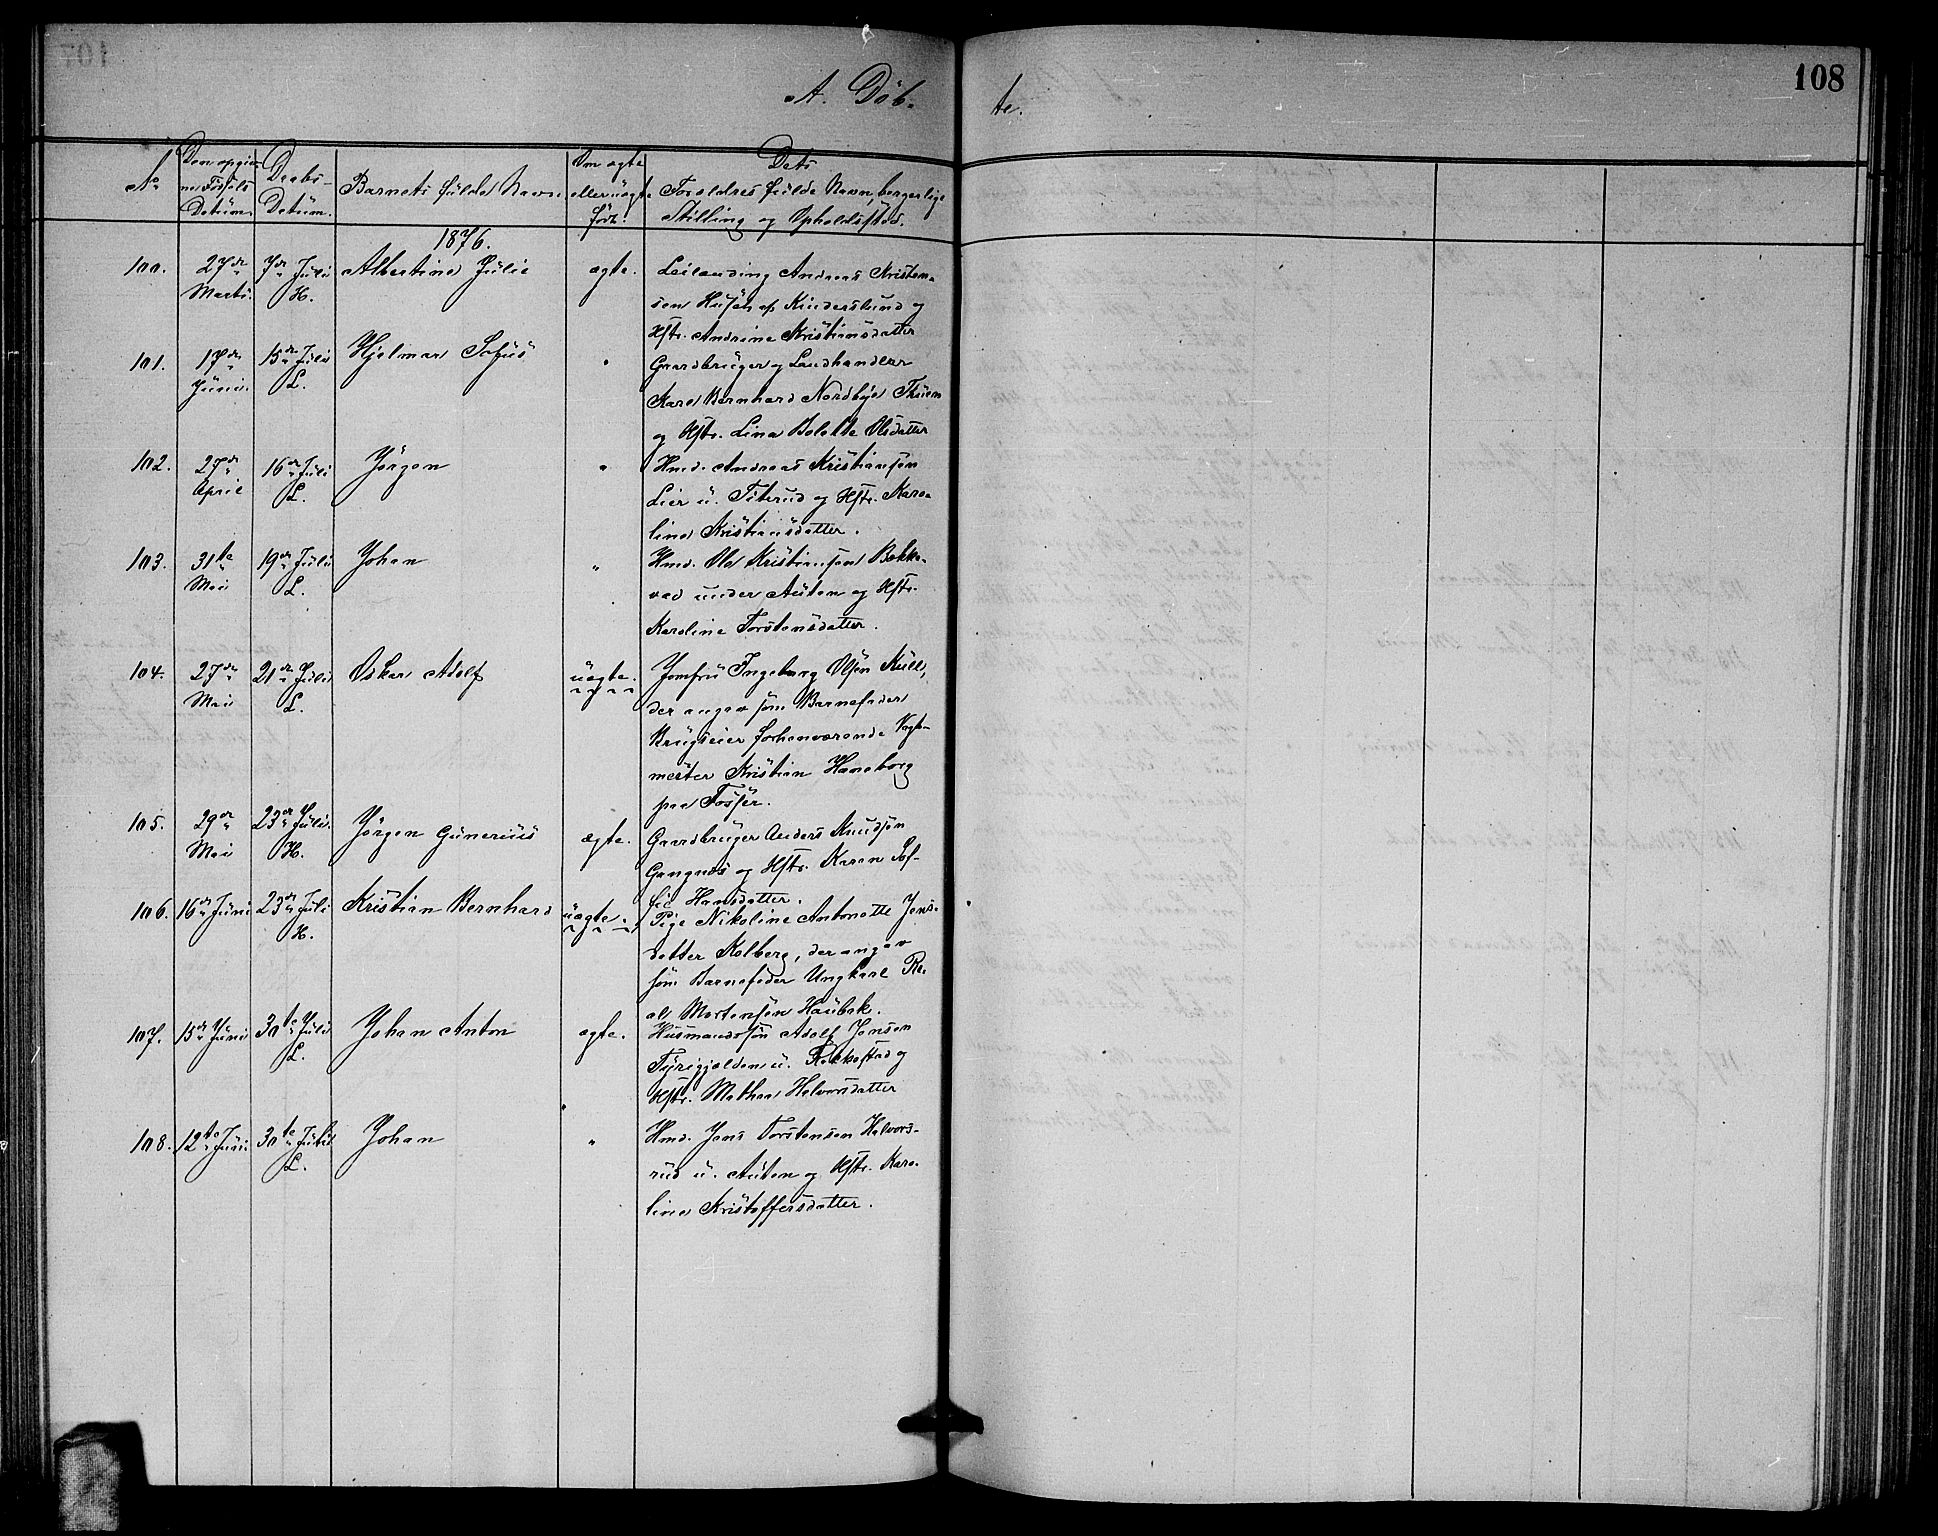 108
A. Döb-
te.
No
Den opgiv-
ne Födsels
Datum.
Daabs-
Datum.
Barnets fulde Navn.
Om ægte
eller uægte
født.
Dets
Forældres fulde Navn, borgerlige
Stilling og Opholdssted.
1876.
100. 27de Marts. 7de Juli H. Albertine Julie ægte. Leilænding Andreas Kristen-
sen af Kinderslund og
Hstr. Andrine Kristiansdatter
101. 17de Juni. 15de Juli L. Hjelmar Sofus " Gaardbruger og Landhandler
Karl Bernhard Nordbye
og Hstr. Lina Bolette Olsdatter
102. 27de April 16de Juli L. Jörgen " Hmd. Andreas Kristiansen
Lier u. Titerud og Hstr. Karo-
line Kristiansdatter.
103. 31te Mai 19de Juli L. Johan " Hmd. Ole Kristiansen Bekke-
vad under Auten og Hstr.
Karoline Torstensdatter.
104. 27de Mai 21de Juli L. Oskar Adolf uægte. Jomfru Ingeborg Olsen Kull,
der angav som Barnefader
Brugseier forhenværende Vagt-
mester Kristian Haneborg
paa Fosser.
105. 29de Mai 23de Juli. H. Jörgen Gunerius ægte. Gaardbruger Anders Knudsen
Gangnæs og Hstr. Karen Sof-
fie Hansdatter.
106. 16de Juni 23de Juli H. Kristian Bernhard uægte. Pige Nikoline Antonette Jens-
datter Kolberg, der angav
som Barnefader Ungkarl
Mortensen Haubak.
107. 15de Juni 30te Juli L. Johan Anton ægte. Husmandssøn Adolf Jensen
Tyrigjelden u. Rakkestad og
Hstr. Mathea Halvorsdatter
108. 12te Juni. 30te Juli L. Johan " Hmd. Jens Torstensen Halvors-
rud u. Auten og Hstr. Karo-
line Kristoffersdatter.